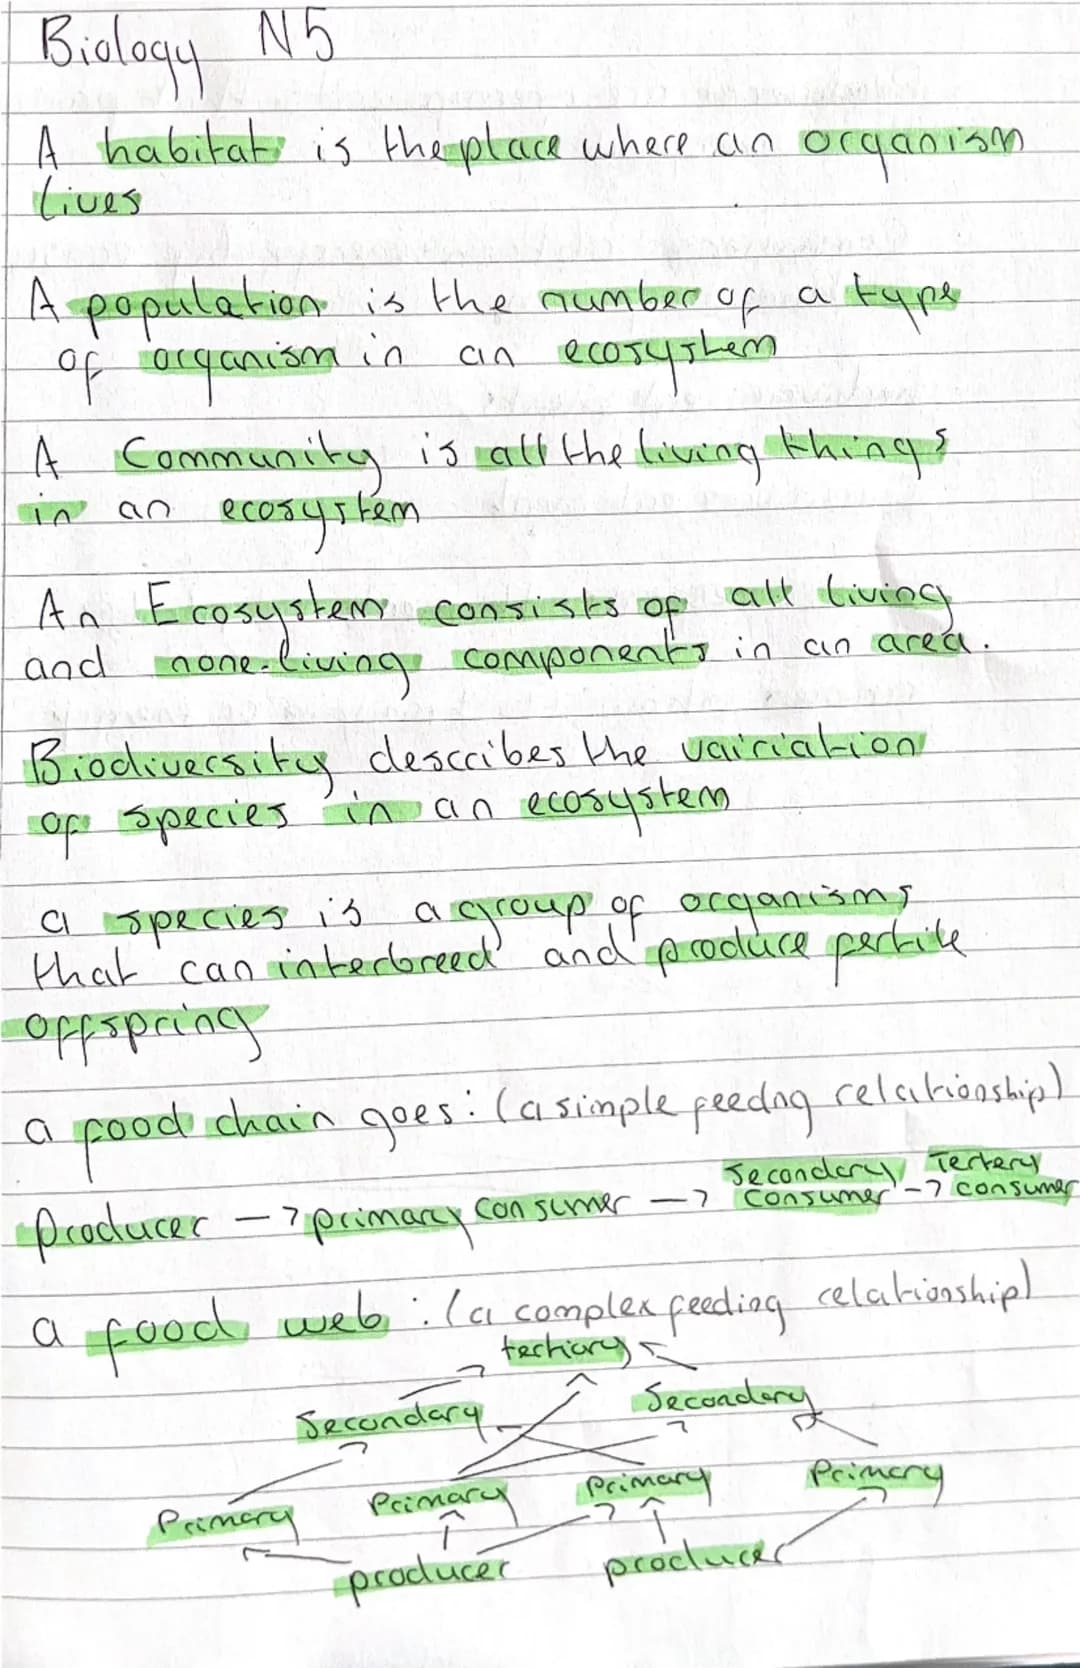 Biology N5
A habitat is the place where an organism
lives
A population is the number of a type
of organism in an ecosystem
A Community is all the living things
in an ecosystem
An Ecosystem consists of all living
and none-living components in an area.
Biodiversity describes the vairiation
of species in an ecosystem
a species is a group of organisms
that can interbreed and produce fertile
offspring
a food chain goes: (a simple feedng relationship)
Secondary Tertery
producer -> primary consumer -> consumer -> consumer
a food web: (a complex feeding relationship)
tertiary
Secondary Secondary
Primary Primary Primary Primary
producer producer